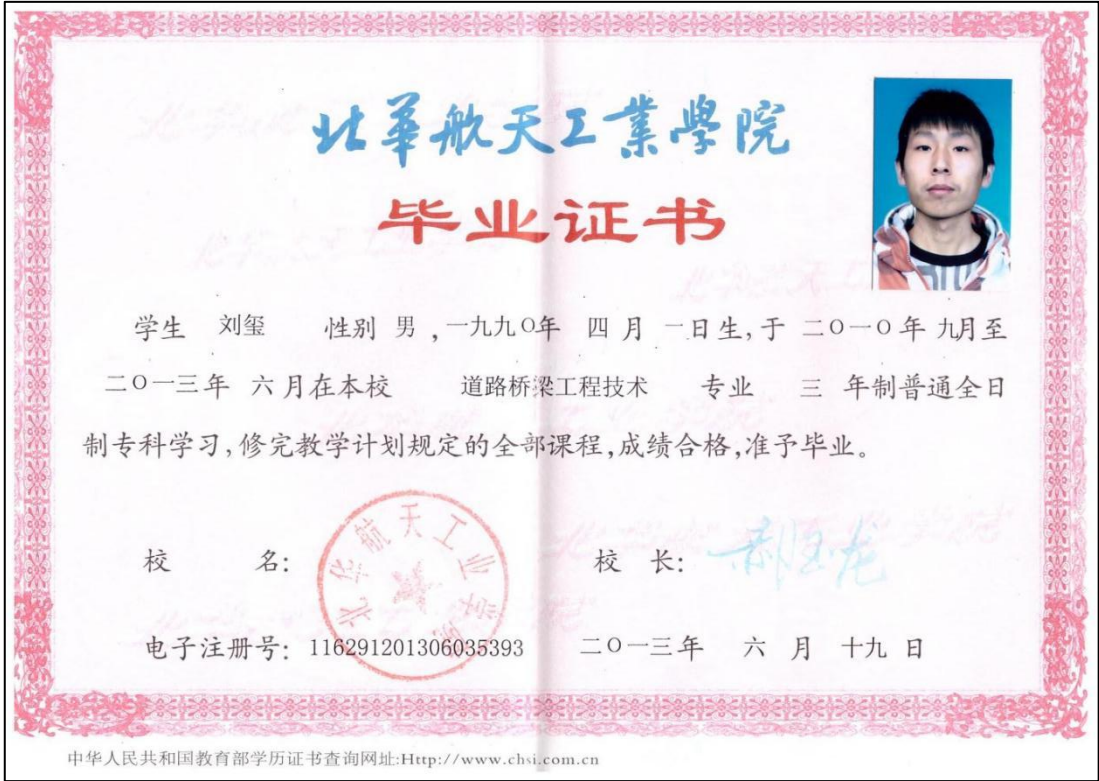 北華航天工業學院
毕业证书
学生 刘玺 性别 男 ,一九九〇年 四 月 一日生,于 二〇一〇年 九月至
二〇一三年 六 月在本校 道路桥梁工程技术 专业 三 年制普通全日
制专科学习,修完教学计划规定的全部课程,成绩合格,准予毕业。
北华航天工业学院
校 名: 校 长:
电子注册号: 116291201306035393 二〇一三年 六 月 十九 日
中华人民共和国教育部学历证书查询网址:Http://www.chsi.com.cn